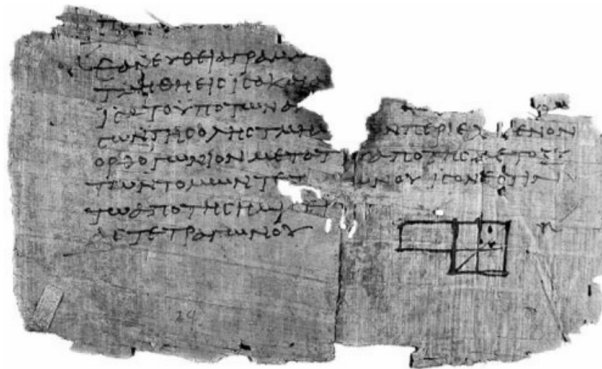 ΕΑΝ ΕΥΘΕΙΑ ΓΡΑΜΜ
ΤΜΗΘΗ ΕΙϹ ΙϹΑ ΚΑΙ ΑΝ
ΙϹΑ ΤΟ ΥΠΟ ΤΩΝ ΑΝ
ΙϹΩΝ ΤΗϹ ΟΛΗϹ ΤΜΗΜ ΩΝ ΠΕΡΙΕΧ ΜΕΝΟΝ
ΟΡΘΟΓΩΝΙΟΝ ΜΕΤΑ ΤΟΥ ΑΠΟ ΤΗϹ ΜΕΤΟΞΥ
ΤΩΝ ΤΟΜΩΝ ΤΕΤ ΩΝΟΥ ΙϹΟΝ ΕϹΤΙΝ
ΤΩ ΑΠΟ ΤΗϹ ΗΜΙ
ΑϹ ΤΕΤΡΑΓΩΝΟΥ
24